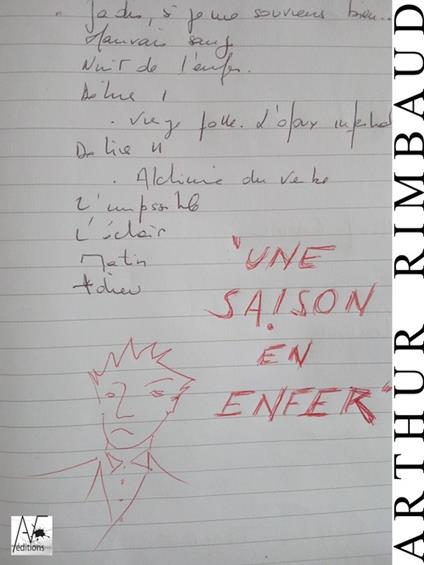 - Jadis, si je me souviens bien...
Mauvais sang
Nuit de l'enfer.
Délire I
. Vierge folle. L'époux infernal
Délire II
. Alchimie du verbe
L'impossible
L'éclair
Matin
Adieu
"UNE
SAISON
EN
ENFER"
ARTHUR RIMBAUD
AF
éditions